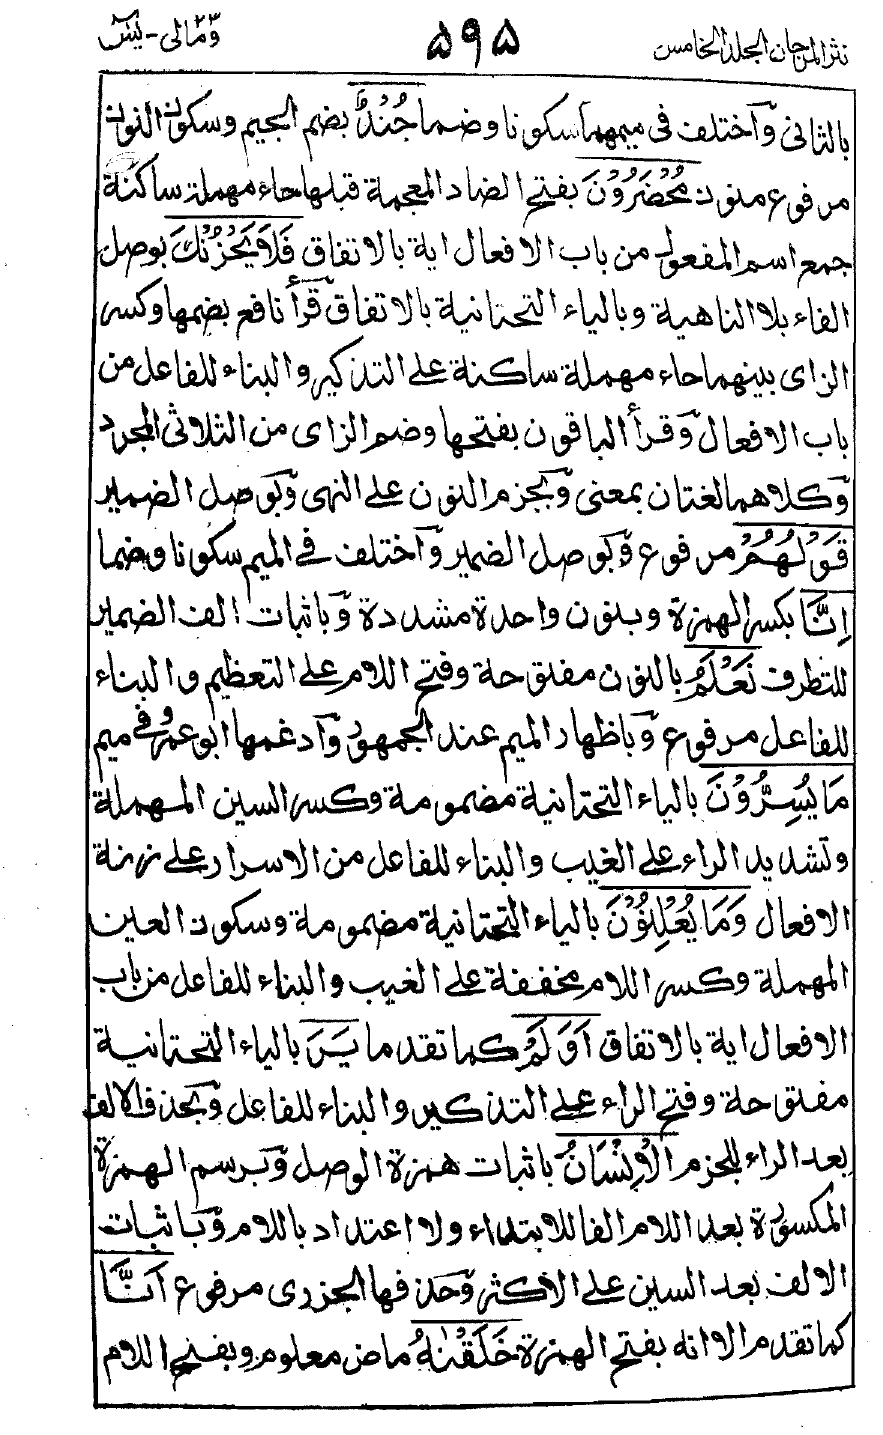 نثر المرجان الجلد الخامس ۵۹۵ ومالی ۲۳ - یٰس
بالثانی وَاختلف فی میمهما سکونا وضما جُنْدٌ بضم الجیم وسکون النون
مرفوع منون مُحْضَرُوْنَ بفتح الضاد المعجمة قبلها حاء مهملة ساکنة
جمع اسم المفعول من باب الافعال ایة بالاتفاق فَلَا یَحْزُنْكَ بوصل
الفاء بلا الناهیة وبالیاء التحتانیة بالاتفاق قرأ نافع بضمها وکسر
الزای بینهما حاء مهملة ساکنة علی التذکیر والبناء للفاعل من
باب الافعال وَقرأ الباقون بفتحها وضم الزای من الثلاثی المجرد
وَکلاهما لغتان بمعنی وَبجزم النون علی النهی وَبوصل الضمیر
قَوْلُهُمْ مرفوع وَبوصل الضمیر وَاختلف فی المیم سکونا وضما
اِنَّا بکسر الهمزة وبنون واحدة مشددة وَباثبات الف الضمیر
للتطرف نَعْلَمُ بالنون مفتوحة وفتح اللام علی التعظیم والبناء
للفاعل مرفوع وَباظهار المیم عند الجمهور وَادغمها ابو عمرو فی میم
مَا یُسِرُّوْنَ بالیاء التحتانیة مضمومة وکسر السین المهملة
وتشدید الراء علی الغیب والبناء للفاعل من الاسرار علی زنة
الافعال وَمَا یُعْلِنُوْنَ بالیاء التحتانیة مضمومة وسکون العین
المهملة وکسر اللام مخففة علی الغیب والبناء للفاعل من باب
الافعال ایة بالاتفاق اَوَلَمْ کما تقدم یَرَ بالیاء التحتانیة
مفتوحة وفتح الراء علی التذکیر والبناء للفاعل وَبحذف الالف
بعد الراء للجزم الْاِنْسَانُ باثبات همزة الوصل وَبرسم الهمزة
المکسورة بعد اللام الفا للابتداء ولا اعتداد باللام وَباثبات
الالف بعد السین علی الاکثر وَحذفها الجزری مرفوع اَنَّا
کما تقدم الا انه بفتح الهمزة خَلَقْنٰهُ ماض معلوم وبفتح اللام